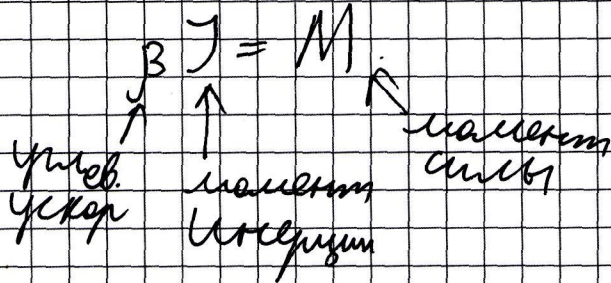 β J = M
углов.
ускор
момент
инерции
момент
силы